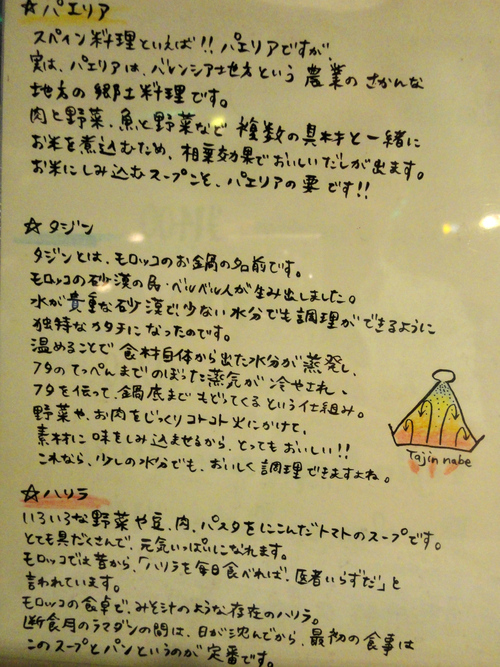 ☆パエリア
スペイン料理といえば!! パエリアですが、
実は、パエリアは、バレンシア地方という 農業のさかんな
地方の郷土料理です。
肉と野菜、魚と野菜など 複数の具材と一緒に
お米を煮込むため、相乗効果でおいしいだしが出ます。
お米にしみ込むスープこそ、パエリアの要です!!
☆タジン
タジンとは、モロッコのお鍋の名前です。
モロッコの砂漠の民 ベルベル人が生み出しました。
水が貴重な砂漠で少ない水分でも調理ができるように
独特なカタチになったのです。
温めることで食材自体から出た水分が蒸発し、
フタのてっぺんまでのぼった蒸気が冷やされ、
フタを伝って鍋底までもどってくるという仕組み。
野菜や、お肉をじっくりコトコト火にかけて、
素材に味をしみ込ませるから、とってもおいしい!!
これなら、少しの水分でも、おいしく調理できますよね。
Tajin nabe
☆ハリラ
いろいろな野菜や豆、肉、パスタをにこんだトマトのスープです。
とても具だくさんで、元気いっぱいになれます。
モロッコでは昔から、「ハリラを毎日食べれば 医者いらずだ」と
言われています。
モロッコの食卓で、みそ汁のような存在のハリラ。
断食月のラマダンの間は、日が沈んでから、最初の食事は
このスープとパンというのが定番です。